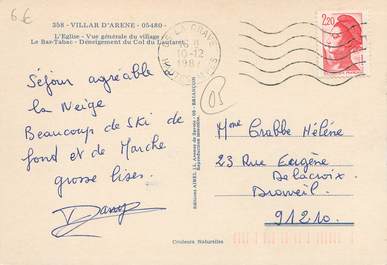 6€
358 - VILLAR D'ARENE - 05480 -
L'Eglise - Vue générale du village
Le Bar-Tabac - Déneigement du Col du Lautaret
LA GRAVE
16 H
10-12
1987
2,20
05
Séjour agréable
la Neige
Beaucoup de Ski de
fond et de Marche
grosse bises.
Dany
Editions AIREL, 11, Avenue de Savoie - 05 - BRIANÇON
Reproduction interdite
Mme Crabbe Hélène
23 Rue Eugène
Delacroix
Draveil
91210.
Couleurs Naturelles